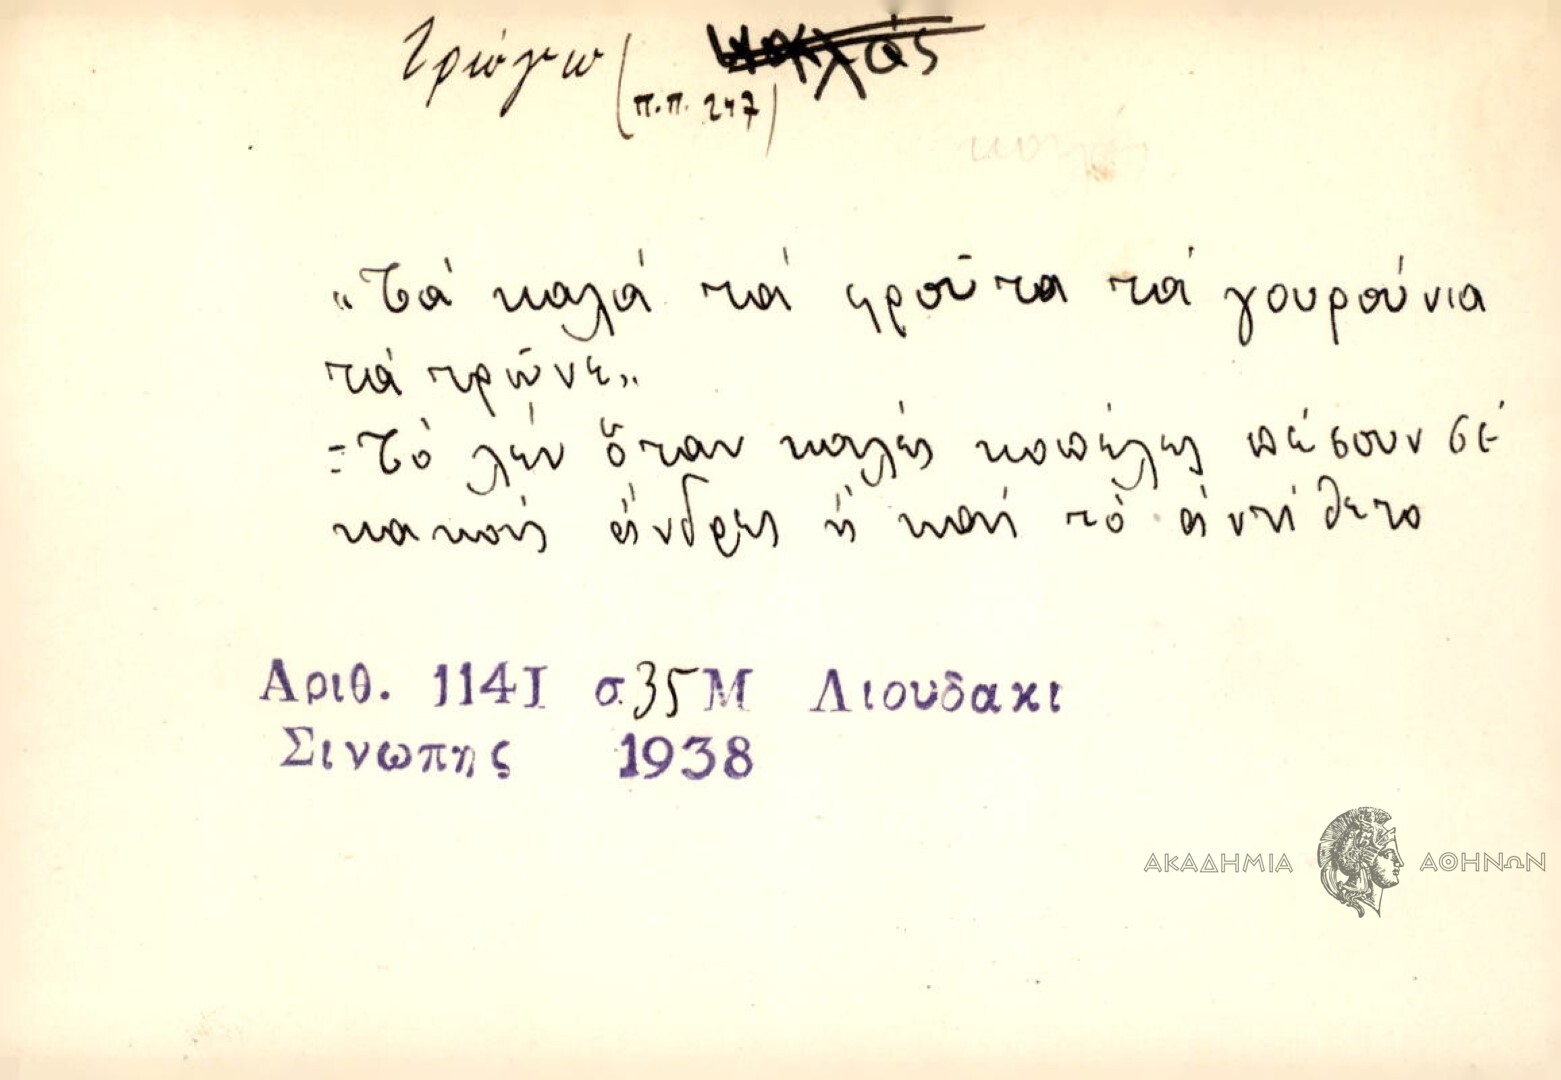 τρώγω (π.π. 247)
«Τά καλά τά φροῦτα τά γουρούνια
τά τρῶνε»
=Τό λέν ὅταν καλές κοπέλες πέσουν σέ
κακούς ἄνδρες ἤ καί τό ἀντίθετο
Αριθ. 1141 σ.35 Μ Λιουδακι
Σινωπης 1938
ΑΚΑΔΗΜΙΑ ΑΘΗΝΩΝ